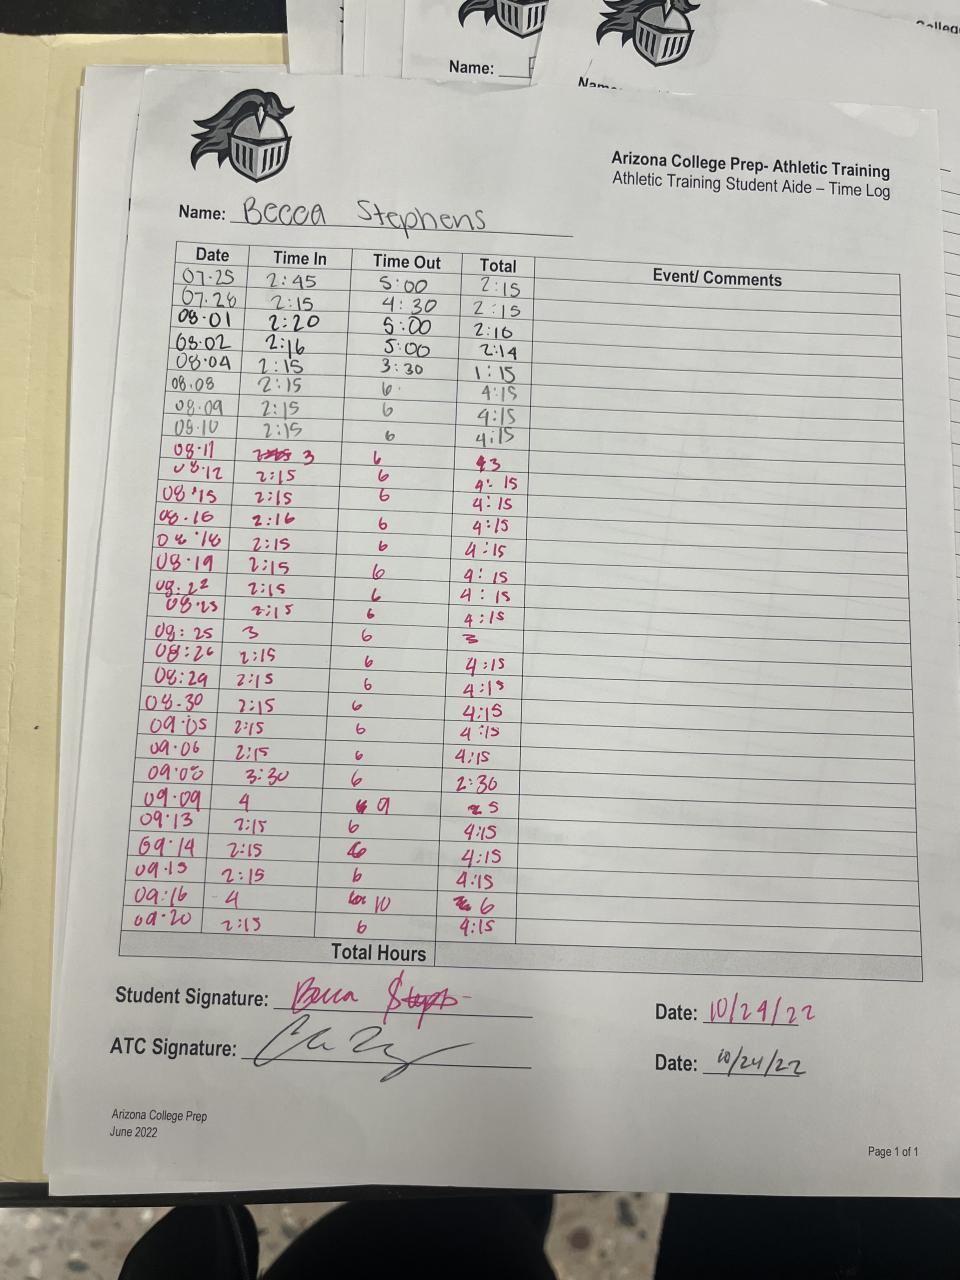 Name:
College
Arizona College Prep- Athletic Training
Athletic Training Student Aide – Time Log
Name: Becca Stephens
Date Time In Time Out Total Event/ Comments
07.25 2:45 5:00 2:15
07.28 2:15 4:30 2:15
08.01 2:20 5:00 2:10
08.02 2:16 5:00 2:14
08.04 2:15 3:30 1:15
08.08 2:15 6 4:15
08.09 2:15 6 4:15
08.10 2:15 6 4:15
08.11 3 6 3
08.12 2:15 6 4:15
08.15 2:15 6 4:15
08.16 2:16 6 4:15
08.18 2:15 6 4:15
08.19 2:15 6 4:15
08.22 2:15 6 4:15
08.23 2:15 6 4:15
08:25 3 6 3
08:26 2:15 6 4:15
08:29 2:15 6 4:15
08.30 2:15 6 4:15
09.05 2:15 6 4:15
09.06 2:15 6 4:15
09.08 3:30 6 2:30
09.09 4 9 5
09.13 2:15 6 4:15
09.14 2:15 6 4:15
09.15 2:15 6 4:15
09:16 4 10 6
09.20 2:15 6 4:15
Total Hours
Student Signature: Becca Date: 10/24/22
ATC Signature: Date: 10/24/22
Arizona College Prep
June 2022
Page 1 of 1